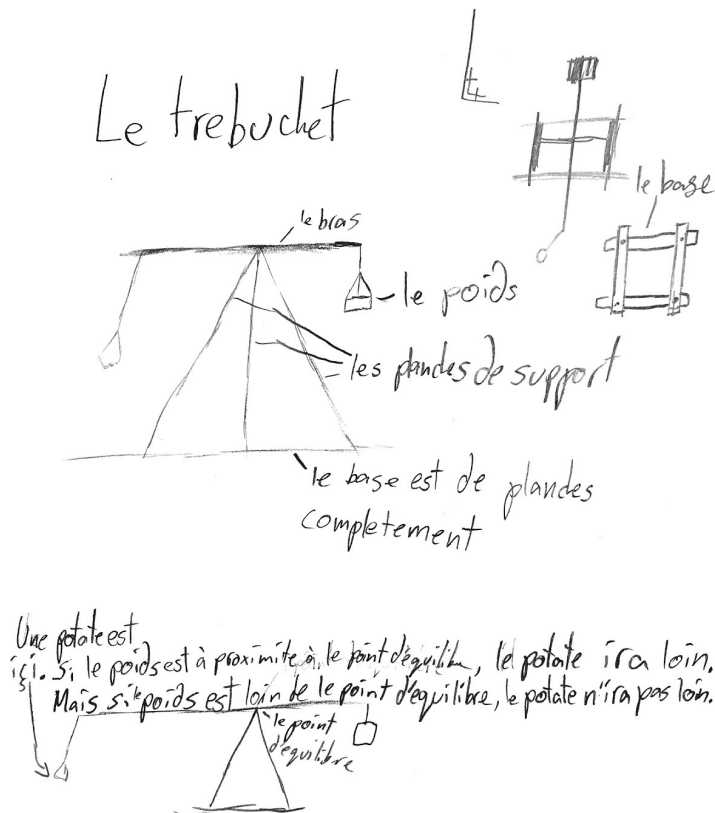 Le trebuchet
le base
le bras
le poids
les plandes de support
le base est de plandes
completement
Une potate est
içi. Si le poids est à proximite à le point d'équilibre, le potate ira loin.
Mais si le poids est loin de le point d'équilibre, le potate n'ira pas loin.
le point
d'équilibre